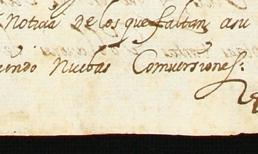 Noticia de los que faltan, a su
endo Nuebas Comversiones.